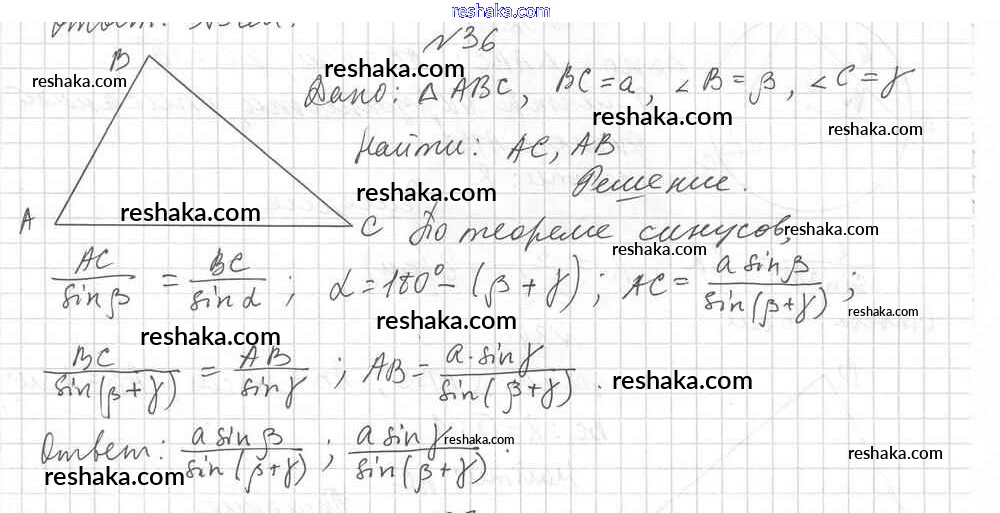 reshaka.com
№36
B reshaka.com
reshaka.com
Дано: △ ABC, BC = a, ∠ B = β, ∠ C = γ
reshaka.com
reshaka.com
Найти: AC, AB
reshaka.com
Решение.
A reshaka.com C По теореме синусов,
reshaka.com
reshaka.com
AC/sin β = BC/sin α ; α = 180° − (β + γ) ; AC = a sin β/sin(β+γ) ;
reshaka.com
reshaka.com
reshaka.com
BC/sin(β+γ) = AB/sin γ ; AB = a · sin γ/sin(β+γ) .
reshaka.com
Ответ: a sin β/sin(β+γ) ; a sin γ/sin(β+γ) .
reshaka.com
reshaka.com
reshaka.com
reshaka.com